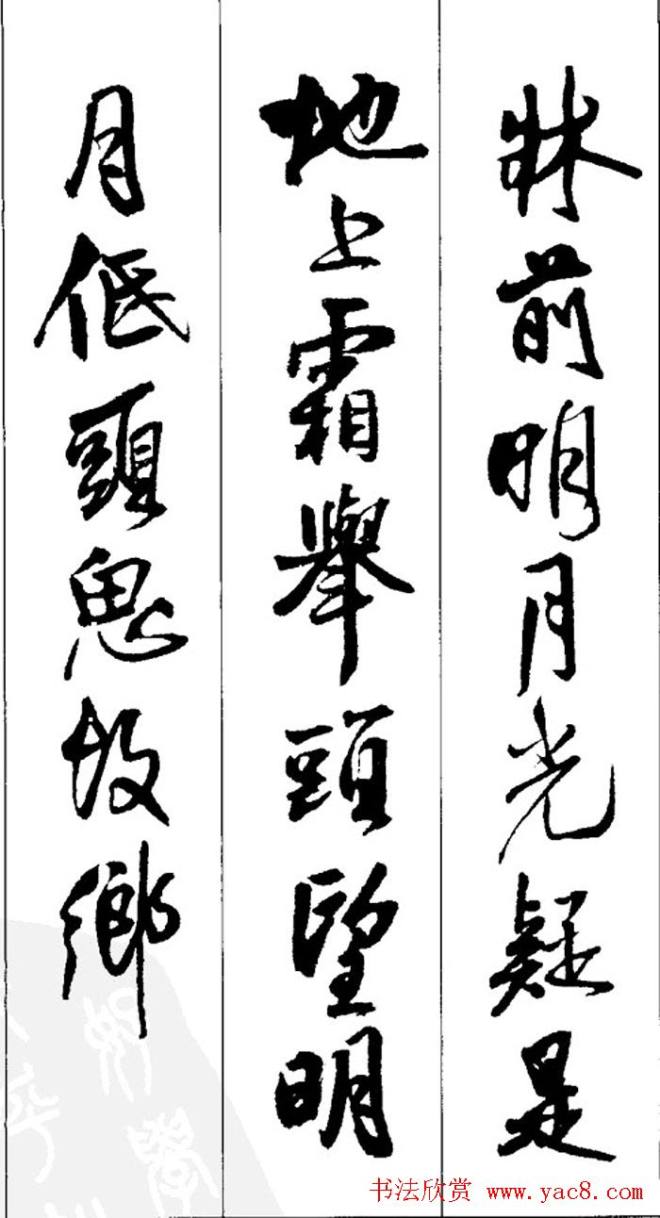 牀前明月光疑是
地上霜舉頭望明
月低頭思故鄉
书法欣赏 www.yac8.com